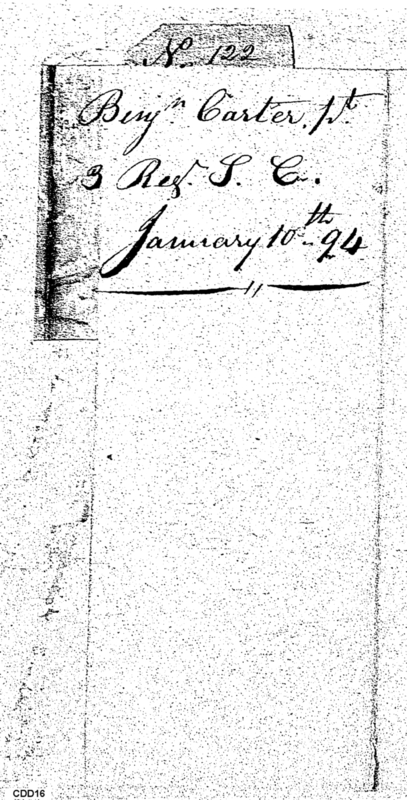 No. 122
Benjn. Carter, pt.
3 Regt. S. C.
January 10th 94
CDD16